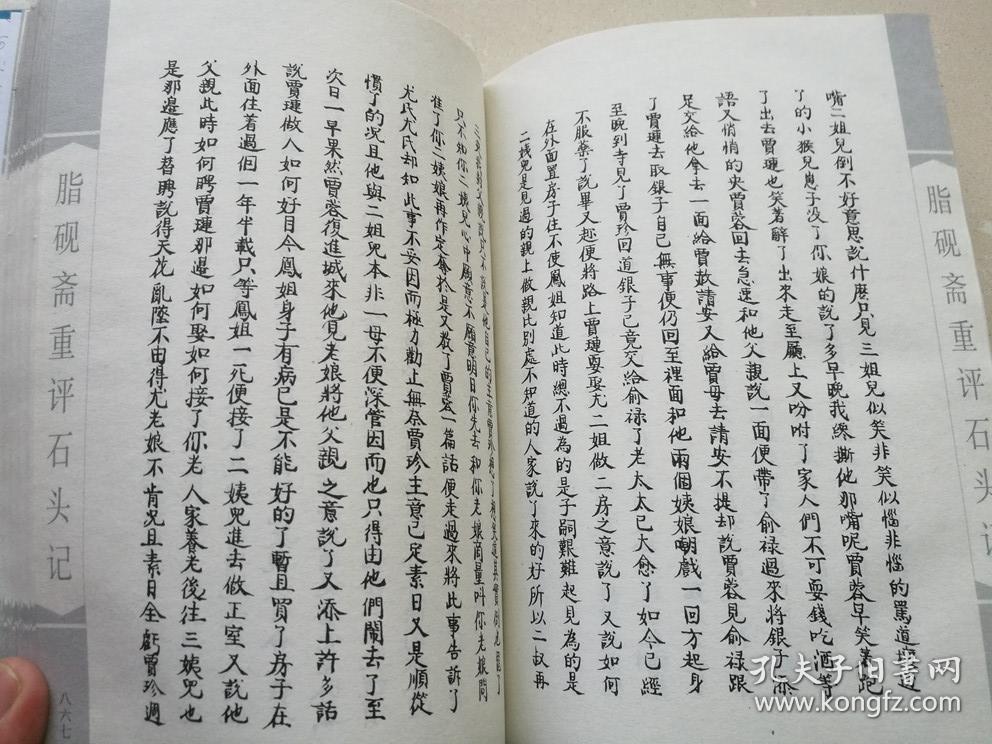 脂砚斋重评石头记
嘴二姐兒倒不好意思說什麼只見三姐兒似笑非笑似惱非惱的罵道壞透
了的小猴兒崽子没了你娘的說了多早晚我纔撕他那嘴呢賈蓉早笑着跑
了出去賈璉也笑着辭了出來走至廳上又吩咐了家人們不可耍錢吃酒等
語又悄悄的央賈蓉回去急速和他父親說一面便帶了俞禄過來將銀子添
足交給他拿去一面給賈赦請安又給賈母去請安不提却說賈蓉見俞禄跟
了賈璉去取銀子自己無事便仍回至裡面和他兩個姨娘嘲戲一回方起身
至晚到寺見了賈珍回道銀子已竟交給俞禄了老太太已大愈了如今已經
不服藥了說畢又趂便將路上賈璉要娶尤二姐做二房之意說了又說如何
在外面置房子住不使鳳姐知道此時總不過為的是子嗣艱難起見為的是
二姨兒是見過的親上做親比別處不知道的人家說了來的好所以二叔再
三央我對父親說只不說是他自己的主意賈珍想了想笑道其實倒也罷了
只不知你二姨兒心中願意不願意明日你先去和你老娘商量叫你老娘問
準了你二姨娘再作定奪於是又教了賈蓉一篇話便走過來將此事告訴了
尤氏尤氏却知此事不妥因而極力勸止無奈賈珍主意已定素日又是順從
慣了的况且他與二姐兒本非一母不便深管因而也只得由他們鬧去了至
次日一早果然賈蓉復進城來他見老娘將他父親之意說了又添上許多話
說賈璉做人如何好目今鳳姐身子有病已是不能好的了暫且買了房子在
外面住着過個一年半載只等鳳姐一死便接了二姨兒進去做正室又說他
父親此時如何聘賈璉那邊如何娶如何接了你老人家養老後往三姨兒也
是那邊應了替聘說得天花亂墜不由得尤老娘不肯况且素日全虧賈珍週
脂砚斋重评石头记
八六七
孔夫子旧书网
kongfz.com